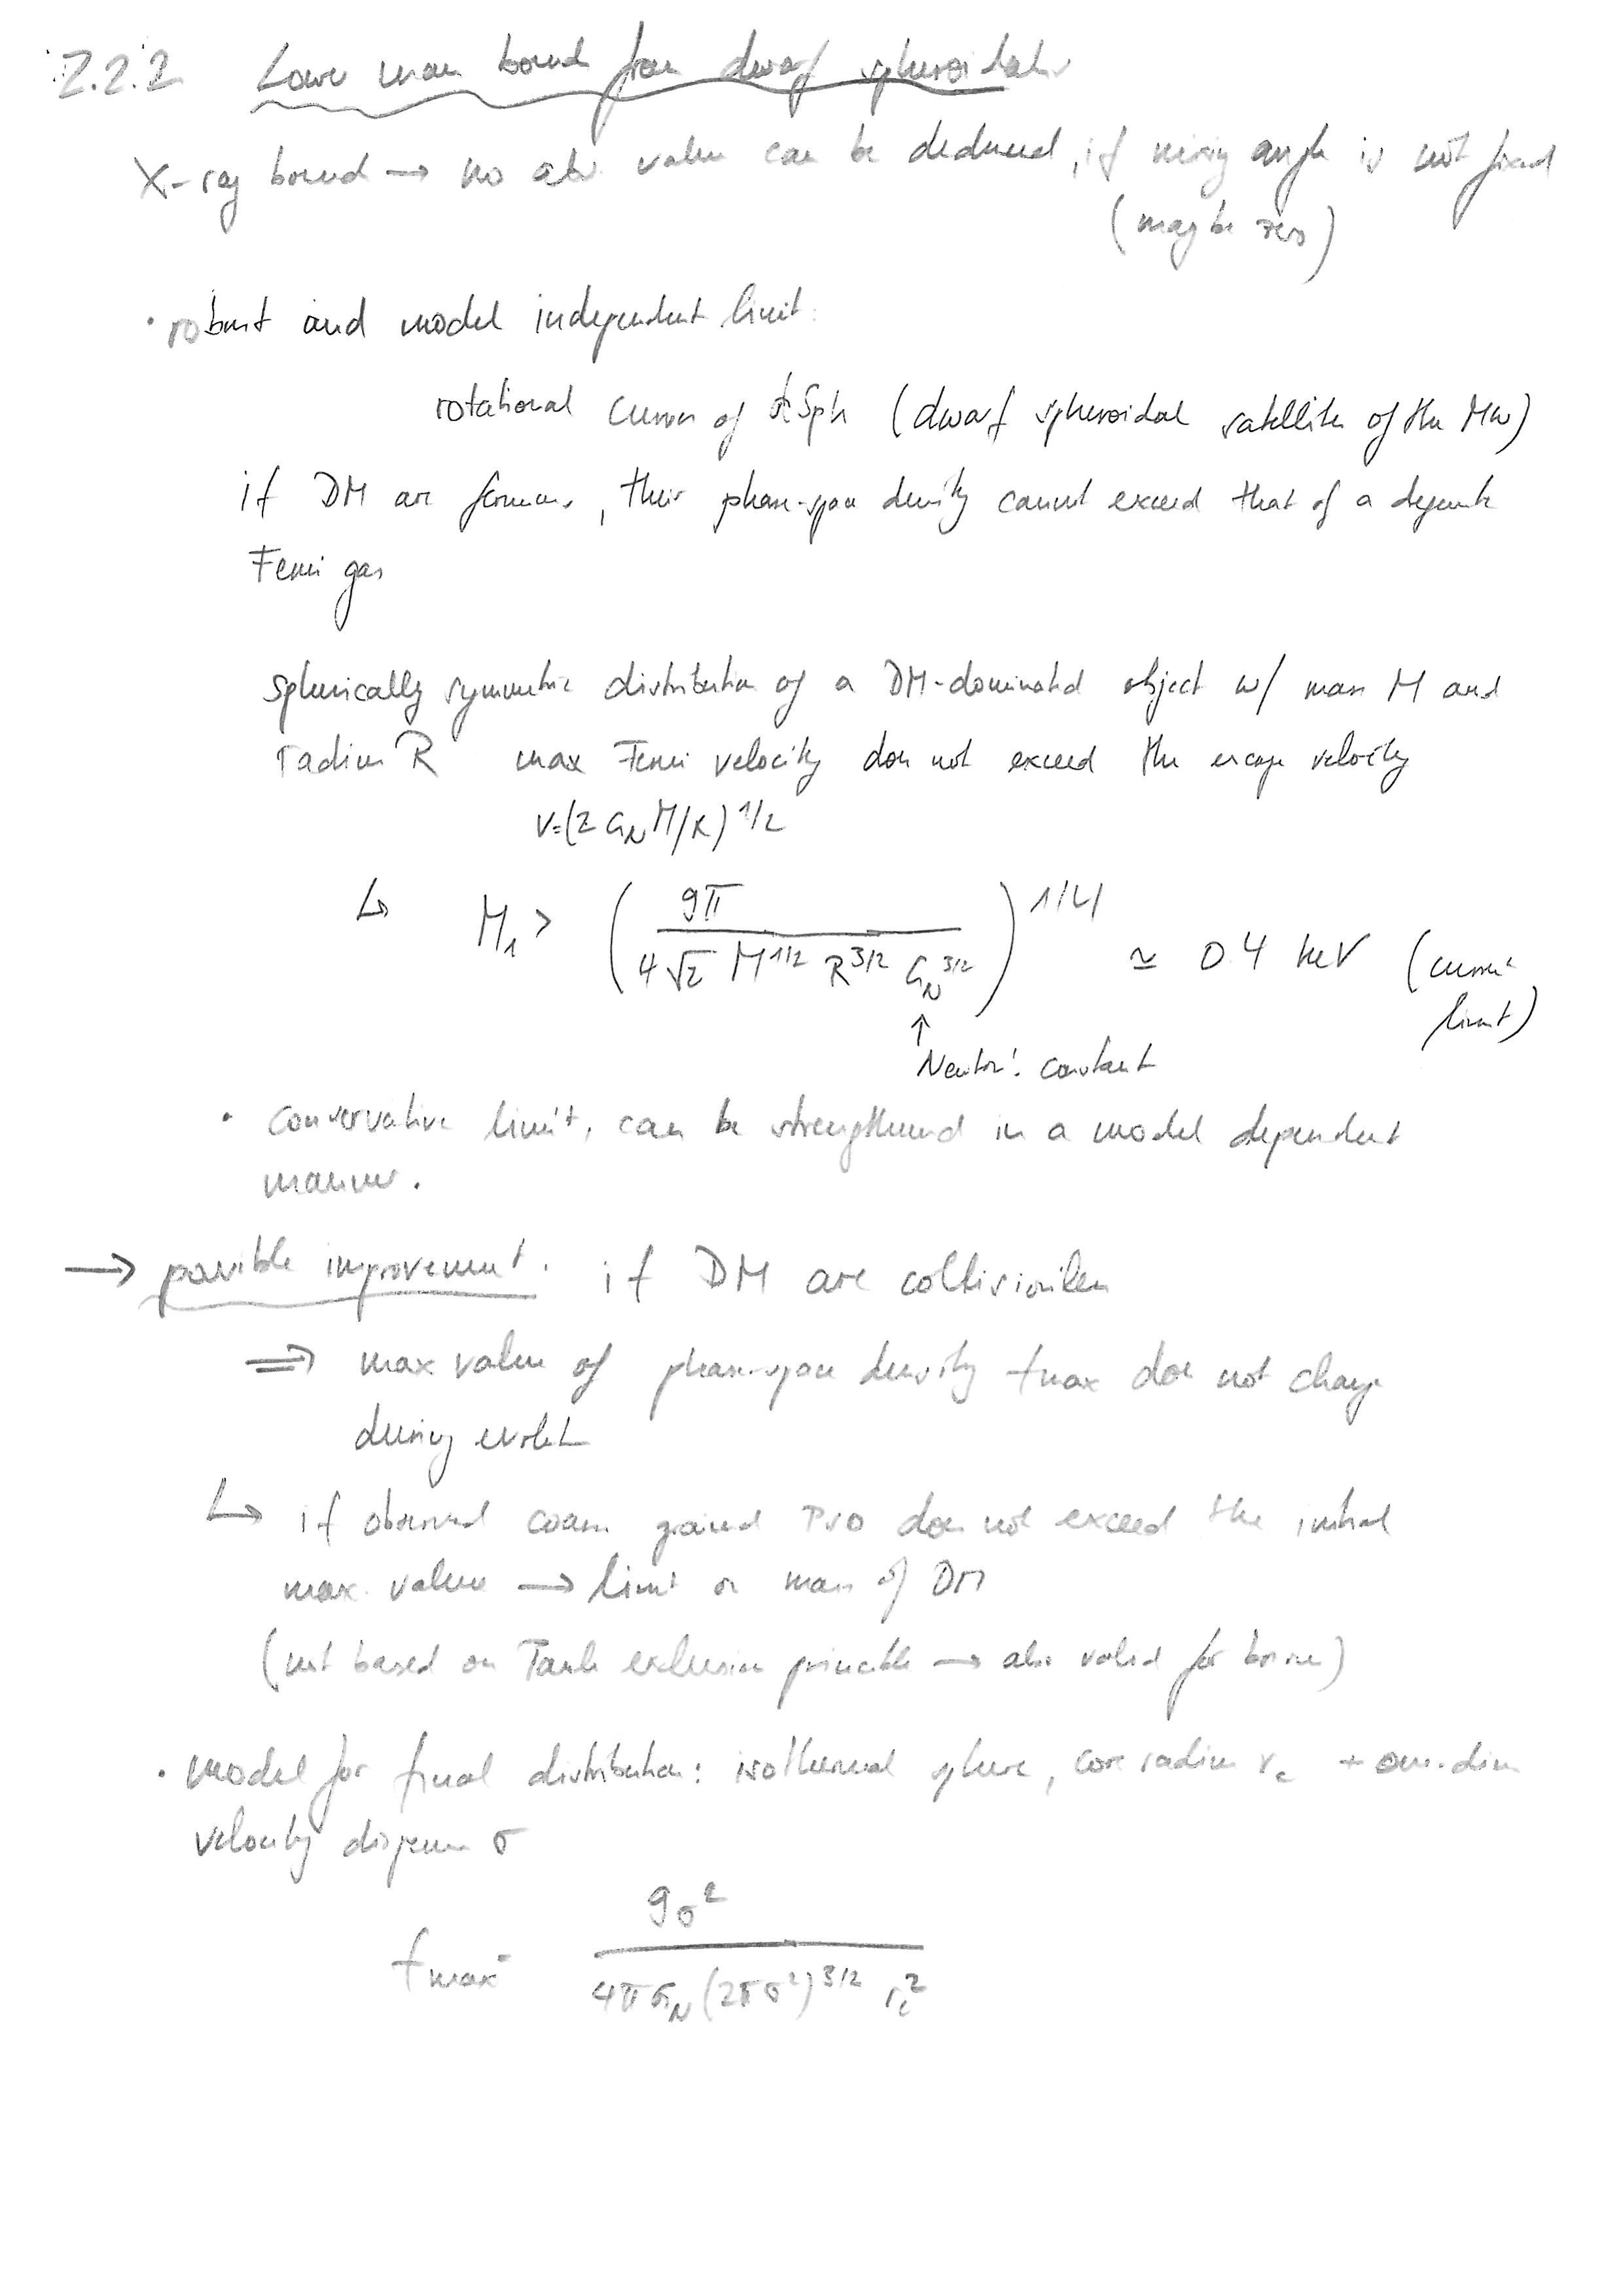 2.2.2 Lower mass bound from dwarf spheroidals
X-ray bound → no abs. value can be deduced, if mixing angle is not fixed
(may be zero)
• robust and model independent limit:
rotational curves of dSph (dwarf spheroidal satellites of the MW)
if DM are fermions, their phase-space density cannot exceed that of a degenerate
Fermi gas
spherically symmetric distribution of a DM-dominated object w/ mass M and
radius R max Fermi velocity does not exceed the escape velocity
v=(2 G_N M/R)^1/2
↳ M_1 > (9π / 4√2 M^1/2 R^3/2 G_N^3/2)^1/4 ≃ 0.4 keV (current
limit)
↑
Newton's constant
• conservative limit, can be strengthened in a model dependent
manner.
→ possible improvement: if DM are collisionless
⇒ max value of phase-space density fmax does not change
during evolut
↳ if observed coarse grained PSD does not exceed the initial
max. value → limit on mass of DM
(not based on Pauli exclusion principle → also valid for bosons)
• model for final distribution: isothermal sphere, core radius r_c + one-dim
velocity dispersion σ
f_max = 9σ^2 / 4π G_N (2πσ^2)^3/2 r_c^2